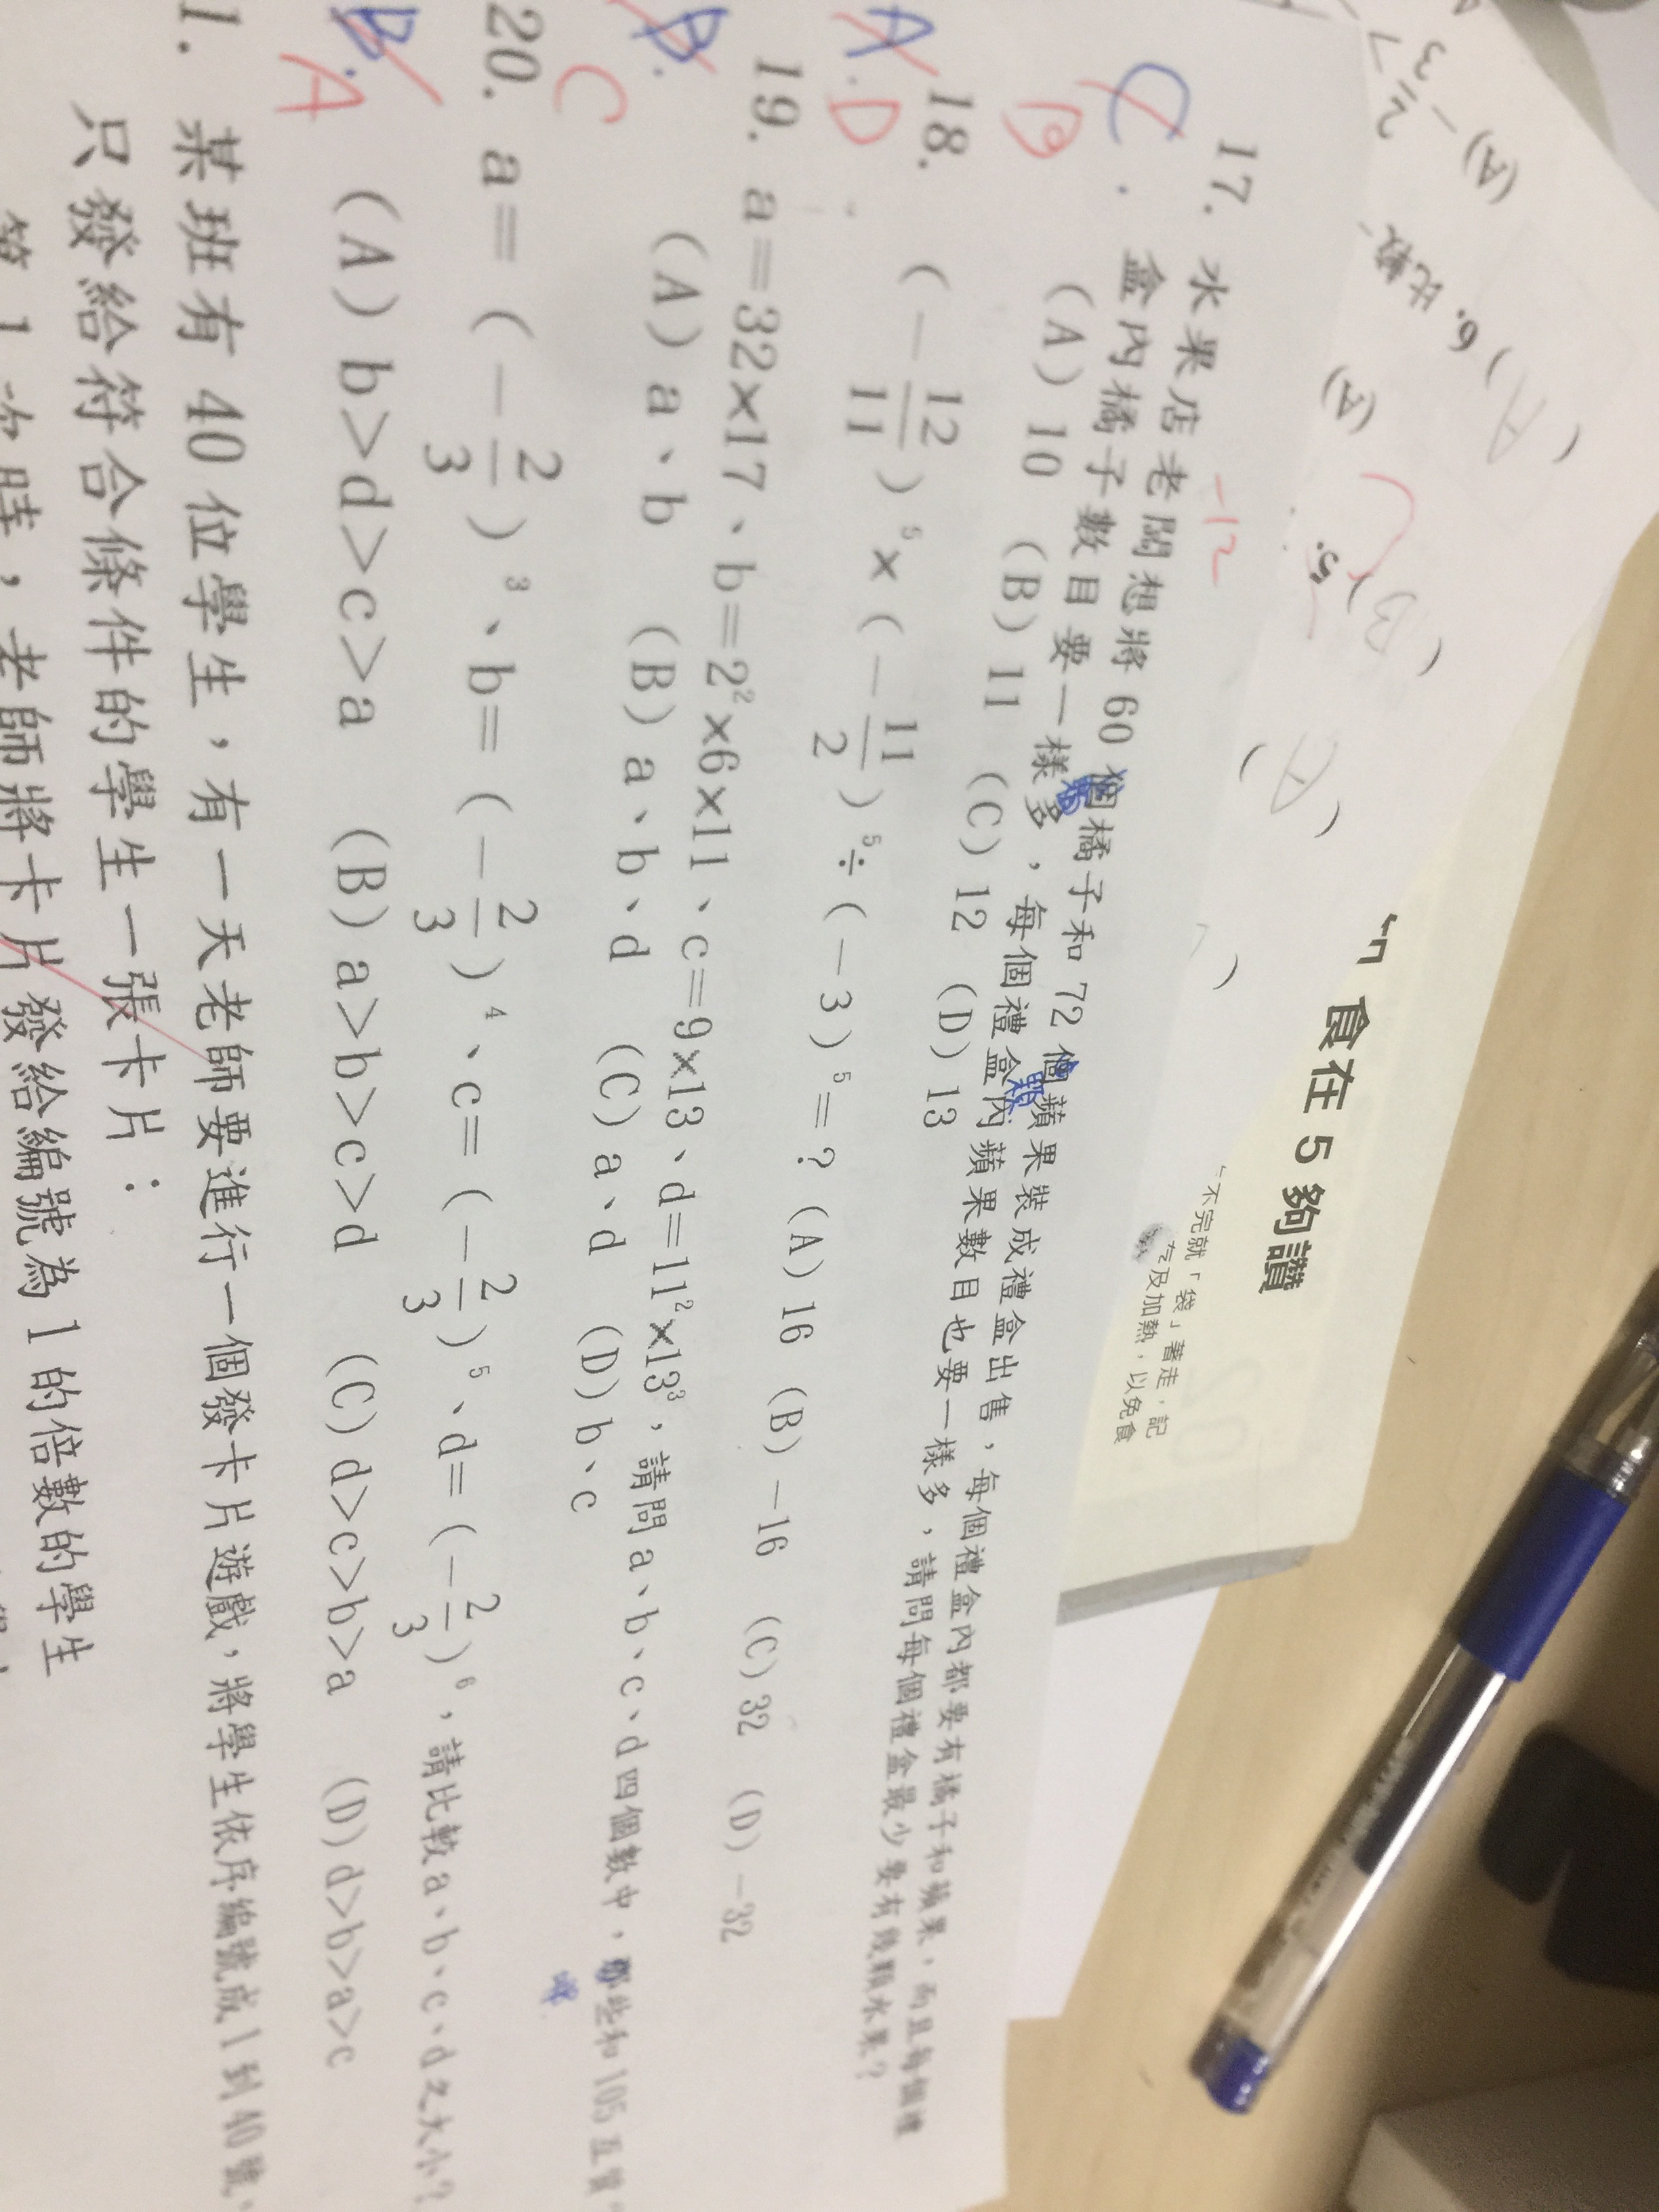 食在5夠讚
不完就「袋」著走,記
及加熱,以免食
-12
17. 水果店老闆想將 60 個橘子和 72 個蘋果裝成禮盒出售,每個禮盒內都要有橘子和蘋果,而且每個禮
盒內橘子數目要一樣多,每個禮盒內蘋果數目也要一樣多,請問每個禮盒最少要有幾顆水果?
(A) 10 (B) 11 (C) 12 (D) 13
C.
B
18. (-12/11)⁵×(-11/2)⁵÷(-3)⁵=? (A) 16 (B) -16 (C) 32 (D) -32
A.D
19. a=32×17、b=2²×6×11、c=9×13、d=11²×13³,請問 a、b、c、d 四個數中,那些和 105 互質
(A) a、b (B) a、b、d (C) a、d (D) b、c
B.
C
20. a=(-2/3)³、b=(-2/3)⁴、c=(-2/3)⁵、d=(-2/3)⁶,請比較 a、b、c、d 之大小?
(A) b>d>c>a (B) a>b>c>d (C) d>c>b>a (D) d>b>a>c
B.
A
1. 某班有 40 位學生,有一天老師要進行一個發卡片遊戲,將學生依序編號成 1 到 40 號,
只發給符合條件的學生一張卡片:
第 1 次時,老師將卡片發給編號為 1 的倍數的學生
(A)
6. 比較
(A)
5.
(B)
(A)